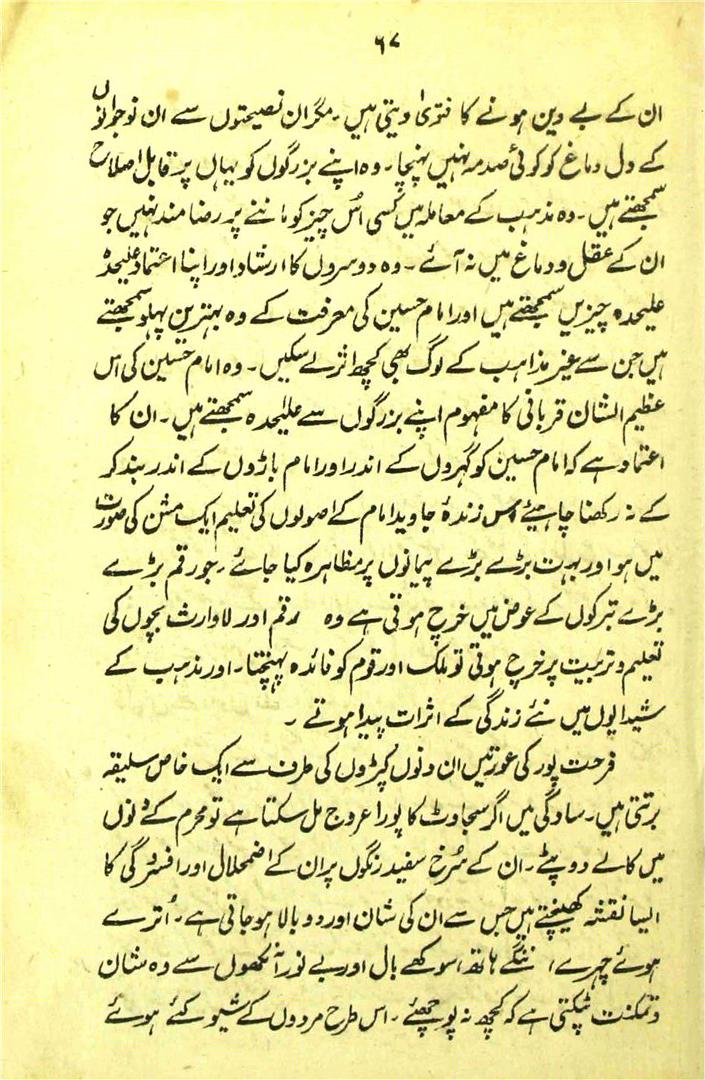 ۶۷
ان کے بے دین ہونے کا فتویٰ دیتی ہیں۔ مگر ان نصیحتوں سے ان نوجوانوں
کے دل دماغ کو کوئی صدمہ نہیں پہنچا۔ وہ اپنے بزرگوں کو یہاں پر قابل اصلاح
سمجھتے ہیں۔ وہ مذہب کے معاملہ میں کسی اُس چیز کو ماننے پر رضامند نہیں جو
ان کے عقل و دماغ میں نہ آئے۔ وہ دوسروں کا ارشاد اور اپنا اعتماد علیٰحدہ
علیحدہ چیزیں سمجھتے ہیں اور امام حسین کی معرفت کے وہ بہترین پہلو سمجھتے
ہیں جن سے غیر مذاہب کے لوگ بھی کچھ اثر لے سکیں۔ وہ امام حسین کی اس
عظیم الشان قربانی کا مفہوم اپنے بزرگوں سے علیٰحدہ سمجھتے ہیں۔ ان کا
اعتماد ہے کہ امام حسین کو گہروں کے اندر اور امام باڑوں کے اندر بند کر
کے نہ رکھنا چاہیئے اس زندۂ جاوید امام کے اصولوں کی تعلیم ایک مشن کی صورت
میں ہو اور بہت بڑے بڑے پیمانوں پر مظاہرہ کیا جائے۔ جو رقم بڑے
بڑے تبرکوں کے عوض میں خرچ ہوتی ہے وہ رقم اور لاوارث بچوں کی
تعلیم و تربیت پر خرچ ہوتی تو ملک اور قوم کو فائدہ پہنچتا۔ اور مذہب کے
شیدایوں میں نئے زندگی کے اثرات پیدا ہوتے۔
فرحت پور کی عورتیں ان دنوں کپڑوں کی طرف سے ایک خاص سلیقہ
برتتی ہیں۔ سادگی میں اگر سجاوٹ کا پورا عروج مل سکتا ہے تو محرم کے دنوں
میں کالے دوپٹے۔ ان کے سُرخ سفید رنگوں پر ان کے اضمحلال اور افسردگی کا
ایسا نقشہ کھینچتے ہیں جس سے ان کی شان اور دوبالا ہو جاتی ہے۔ اُترے
ہوئے چہرے، ننگے ہاتھ، سوکھے بال اور بے نور آنکھوں سے وہ شان
و تمکنت ٹپکتی ہے کہ کچھ نہ پوچھئے۔ اس طرح مردوں کے شیو کئے ہوئے